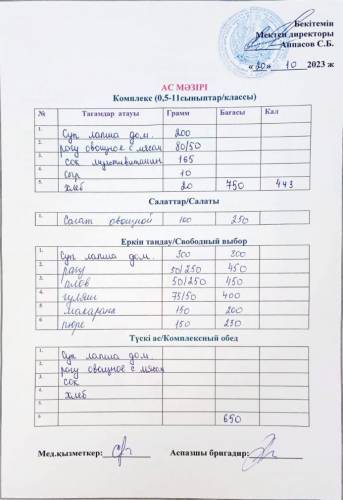 Бекітемін
Мектеп директоры
Аппасов С.Б.
«20» 10 2023 ж
АС МӘЗІРІ
Комплекс (0,5-11сыныптар/классы)
№ Тағамдар атауы Грамм Бағасы Кал
1. Суп лапша дом. 200
2. рагу овощное с мясом 80/50
3. сок мультивитамин 165
4. сыр 10
5. хлеб 20 750 443
Салаттар/Салаты
1. Салат овощной 100 250
Еркін таңдау/Свободный выбор
1. Суп лапша дом. 300 300
2. рагу 50/250 450
3. плов 50/250 450
4. гуляш 75/50 400
5. макароны 150 200
6. пюре 150 250
Түскі ас/Комплексный обед
1. Суп лапша дом.
2. рагу овощное с мясом
3. сок
4. хлеб
5.
6. 650
Мед.қызметкер: Аспазшы бригадир: